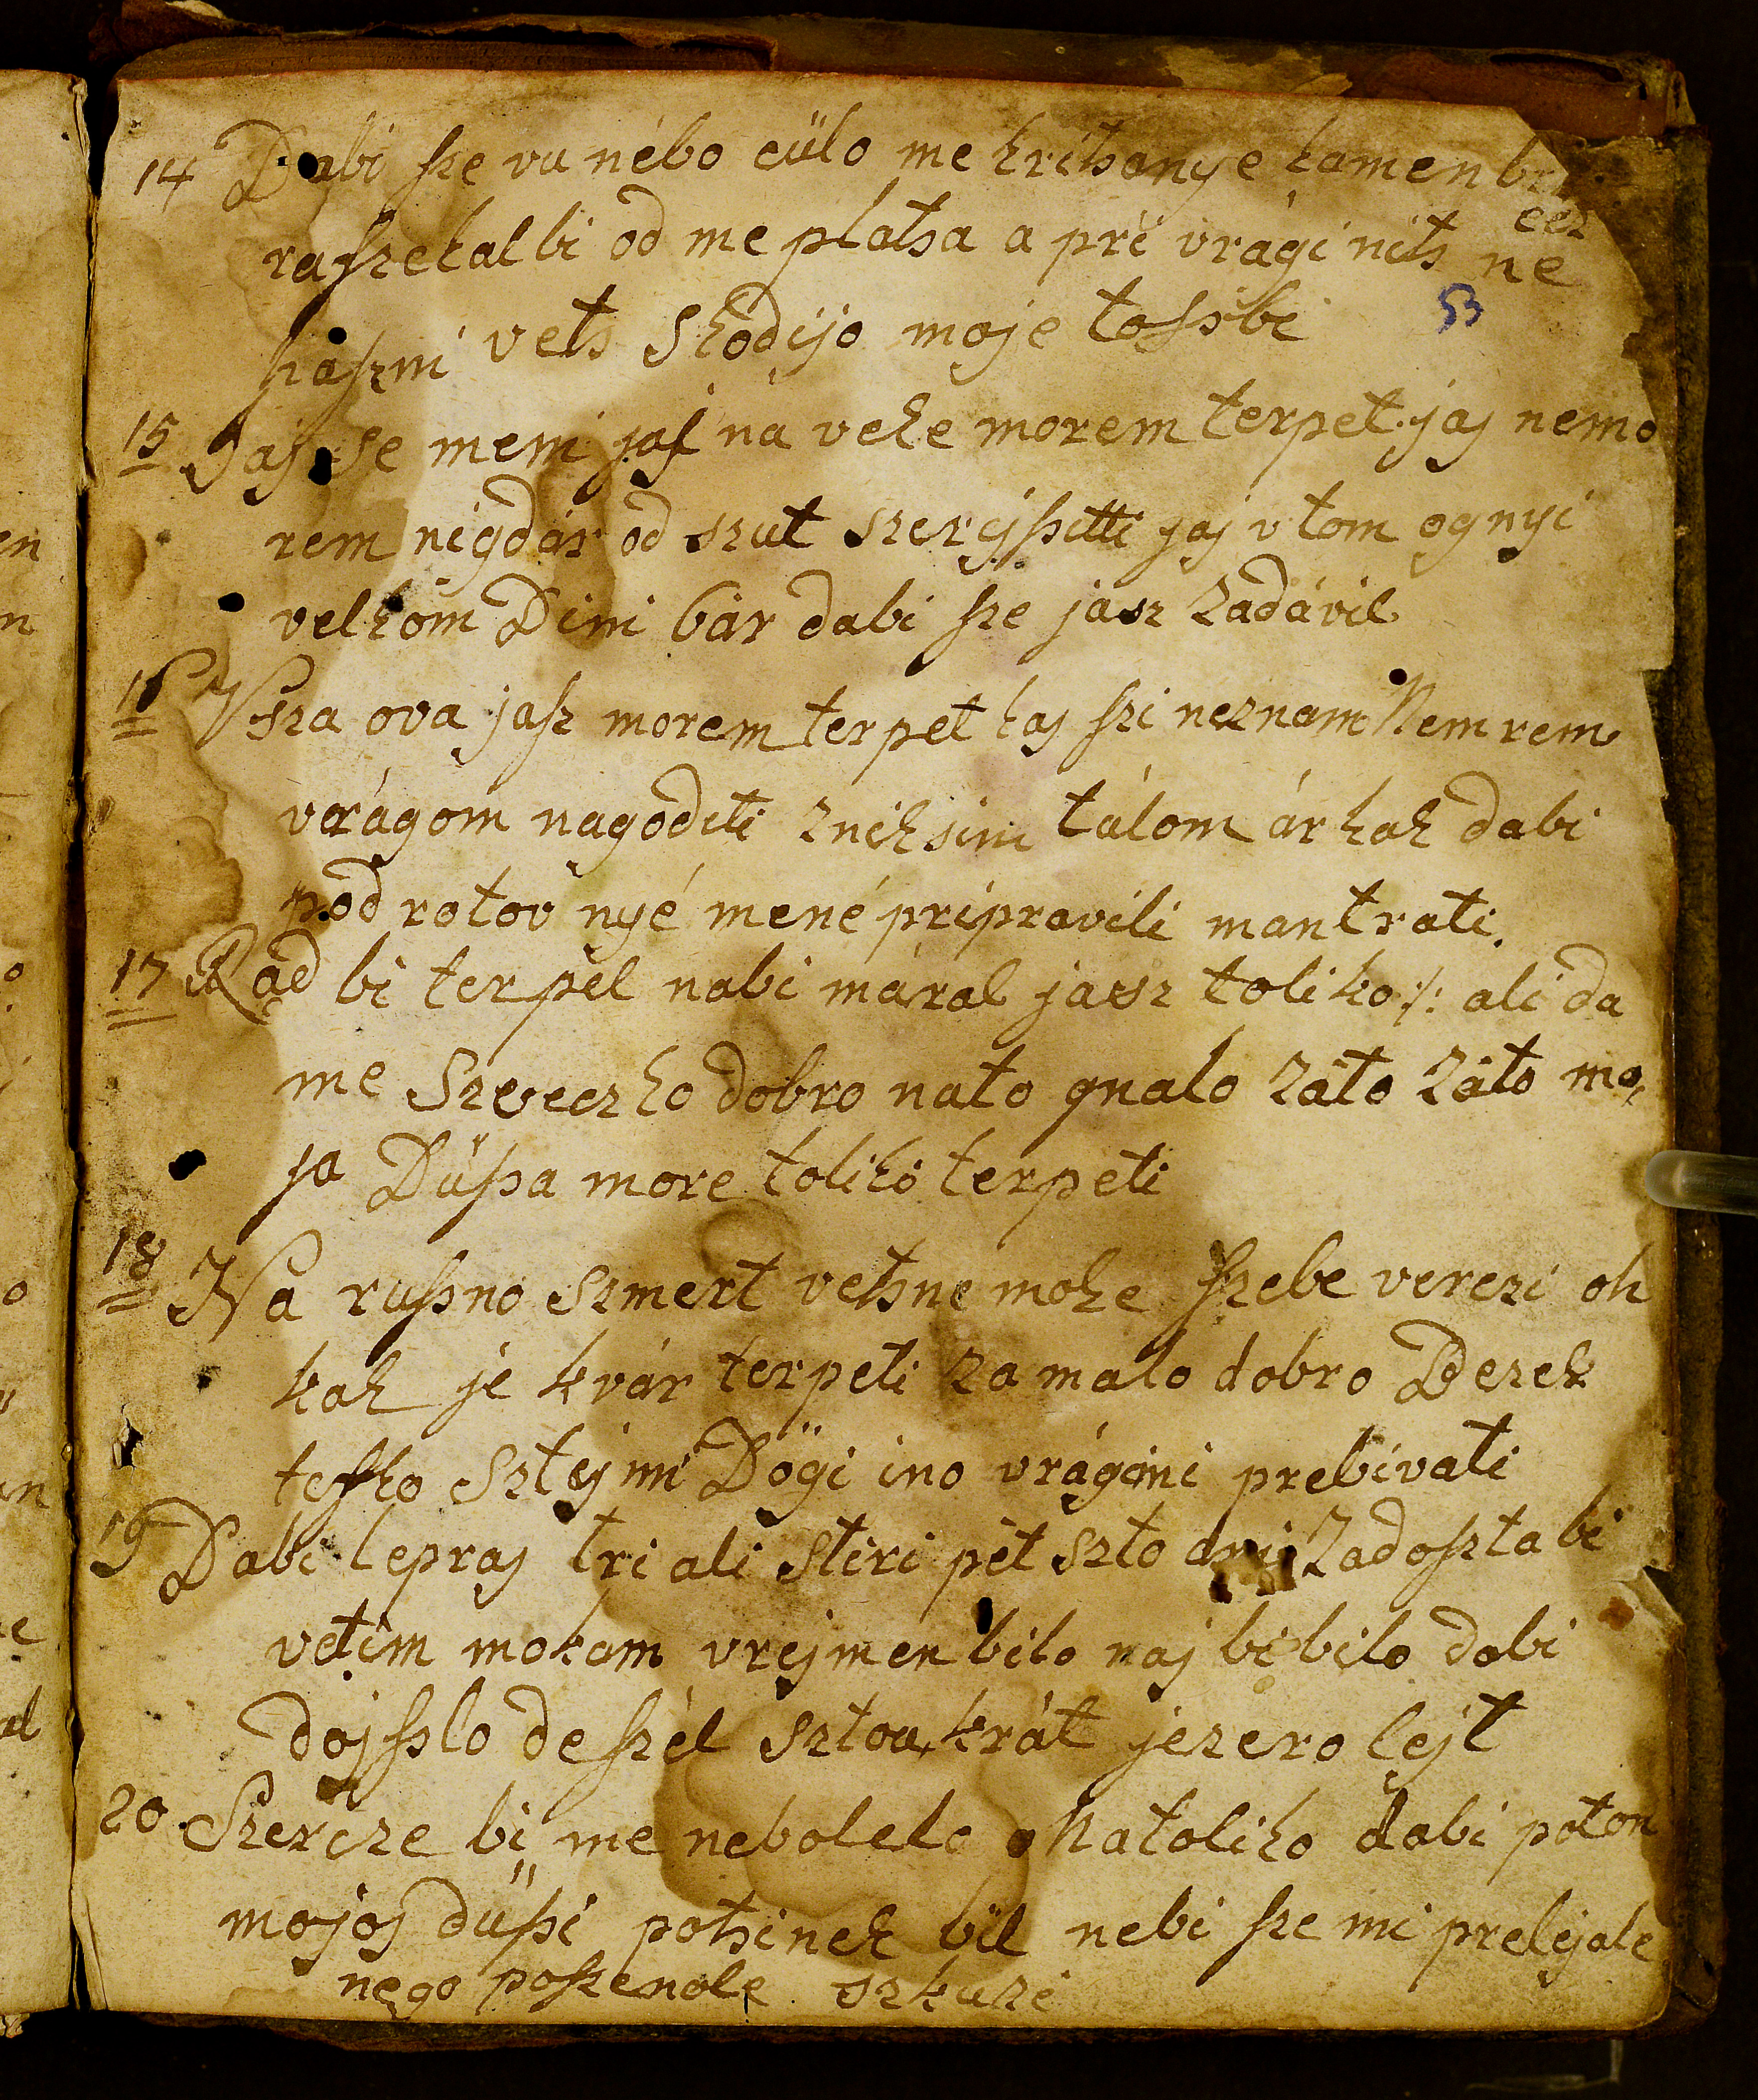 14 Dabi sze vu nébo csülo me kritsanye kamen bi
raszekal bi od me platsa a pri vrági nits ne
cez
53
haszni vets Skodijo moje tossbi
15 Jaj se meni jaj na veke morem terpet jaj nemo
rem nigdár od szut szerejsitti jaj v tom ognyi
velkom Dimi bár dabi sze jasz zadávil
16 Vsza ova jasz morem terpet kaj szi neznam Nem rem
vrágom nagoditi z nikſimi tálom ár kak dabi
pod rotov nyé mené pripravili mantrati.
17 Rad bi terpel nabi máral jasz toliko ·/: ali da
me Szveczko dobro nato gnalo záto záto mo,
ja Düssa more toliko terpeti
18 Na russno szmert vetsne moke szebe verezi oh
kak je kvár terpeti za malo dobro Dezek
tesko sztejmi Dögi ino vrágmi prebivati
19 Dabi lepraj tri ali stiri pét szto dni zadoszta bi
vetim mokam vrejmen bilo naj bi bilo dabi
dojsslo deszét sztou krát jezero lejt
20. Szercze bi me nebolelo natoliko dabi poton
mojoj düssi potsinek bil nebi sze mi prelejale
nego poszenole szkuze